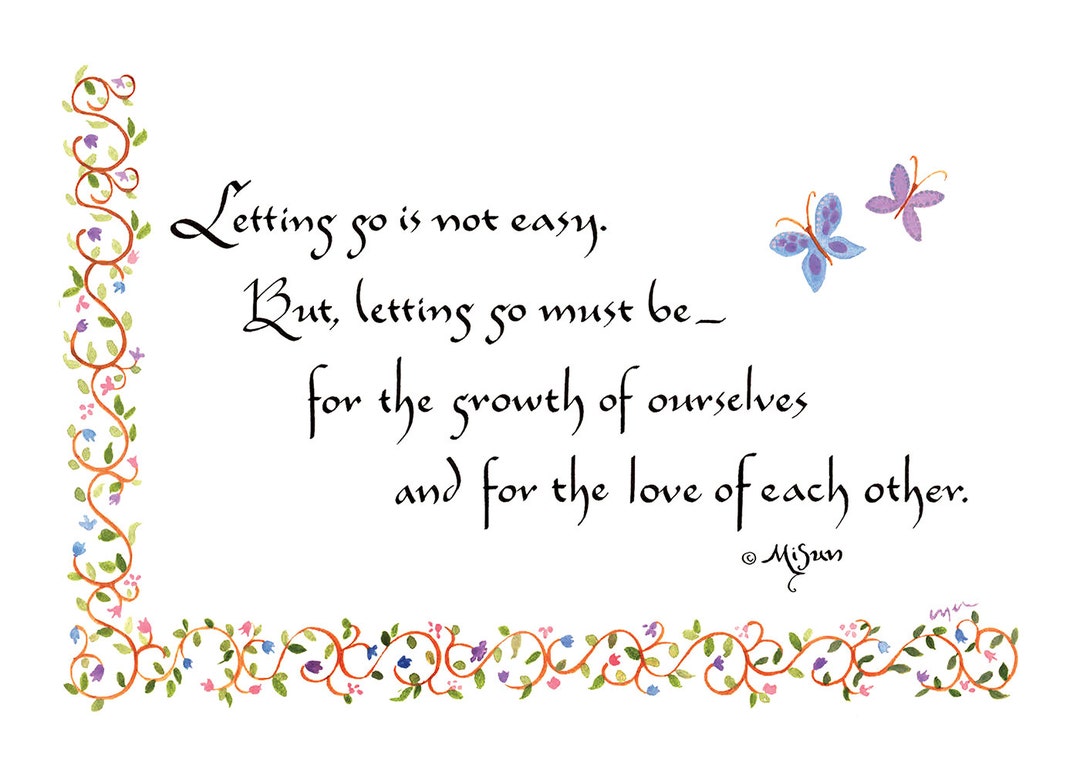 Letting go is not easy.
But, letting go must be–
for the growth of ourselves
and for the love of each other.
© MiSun